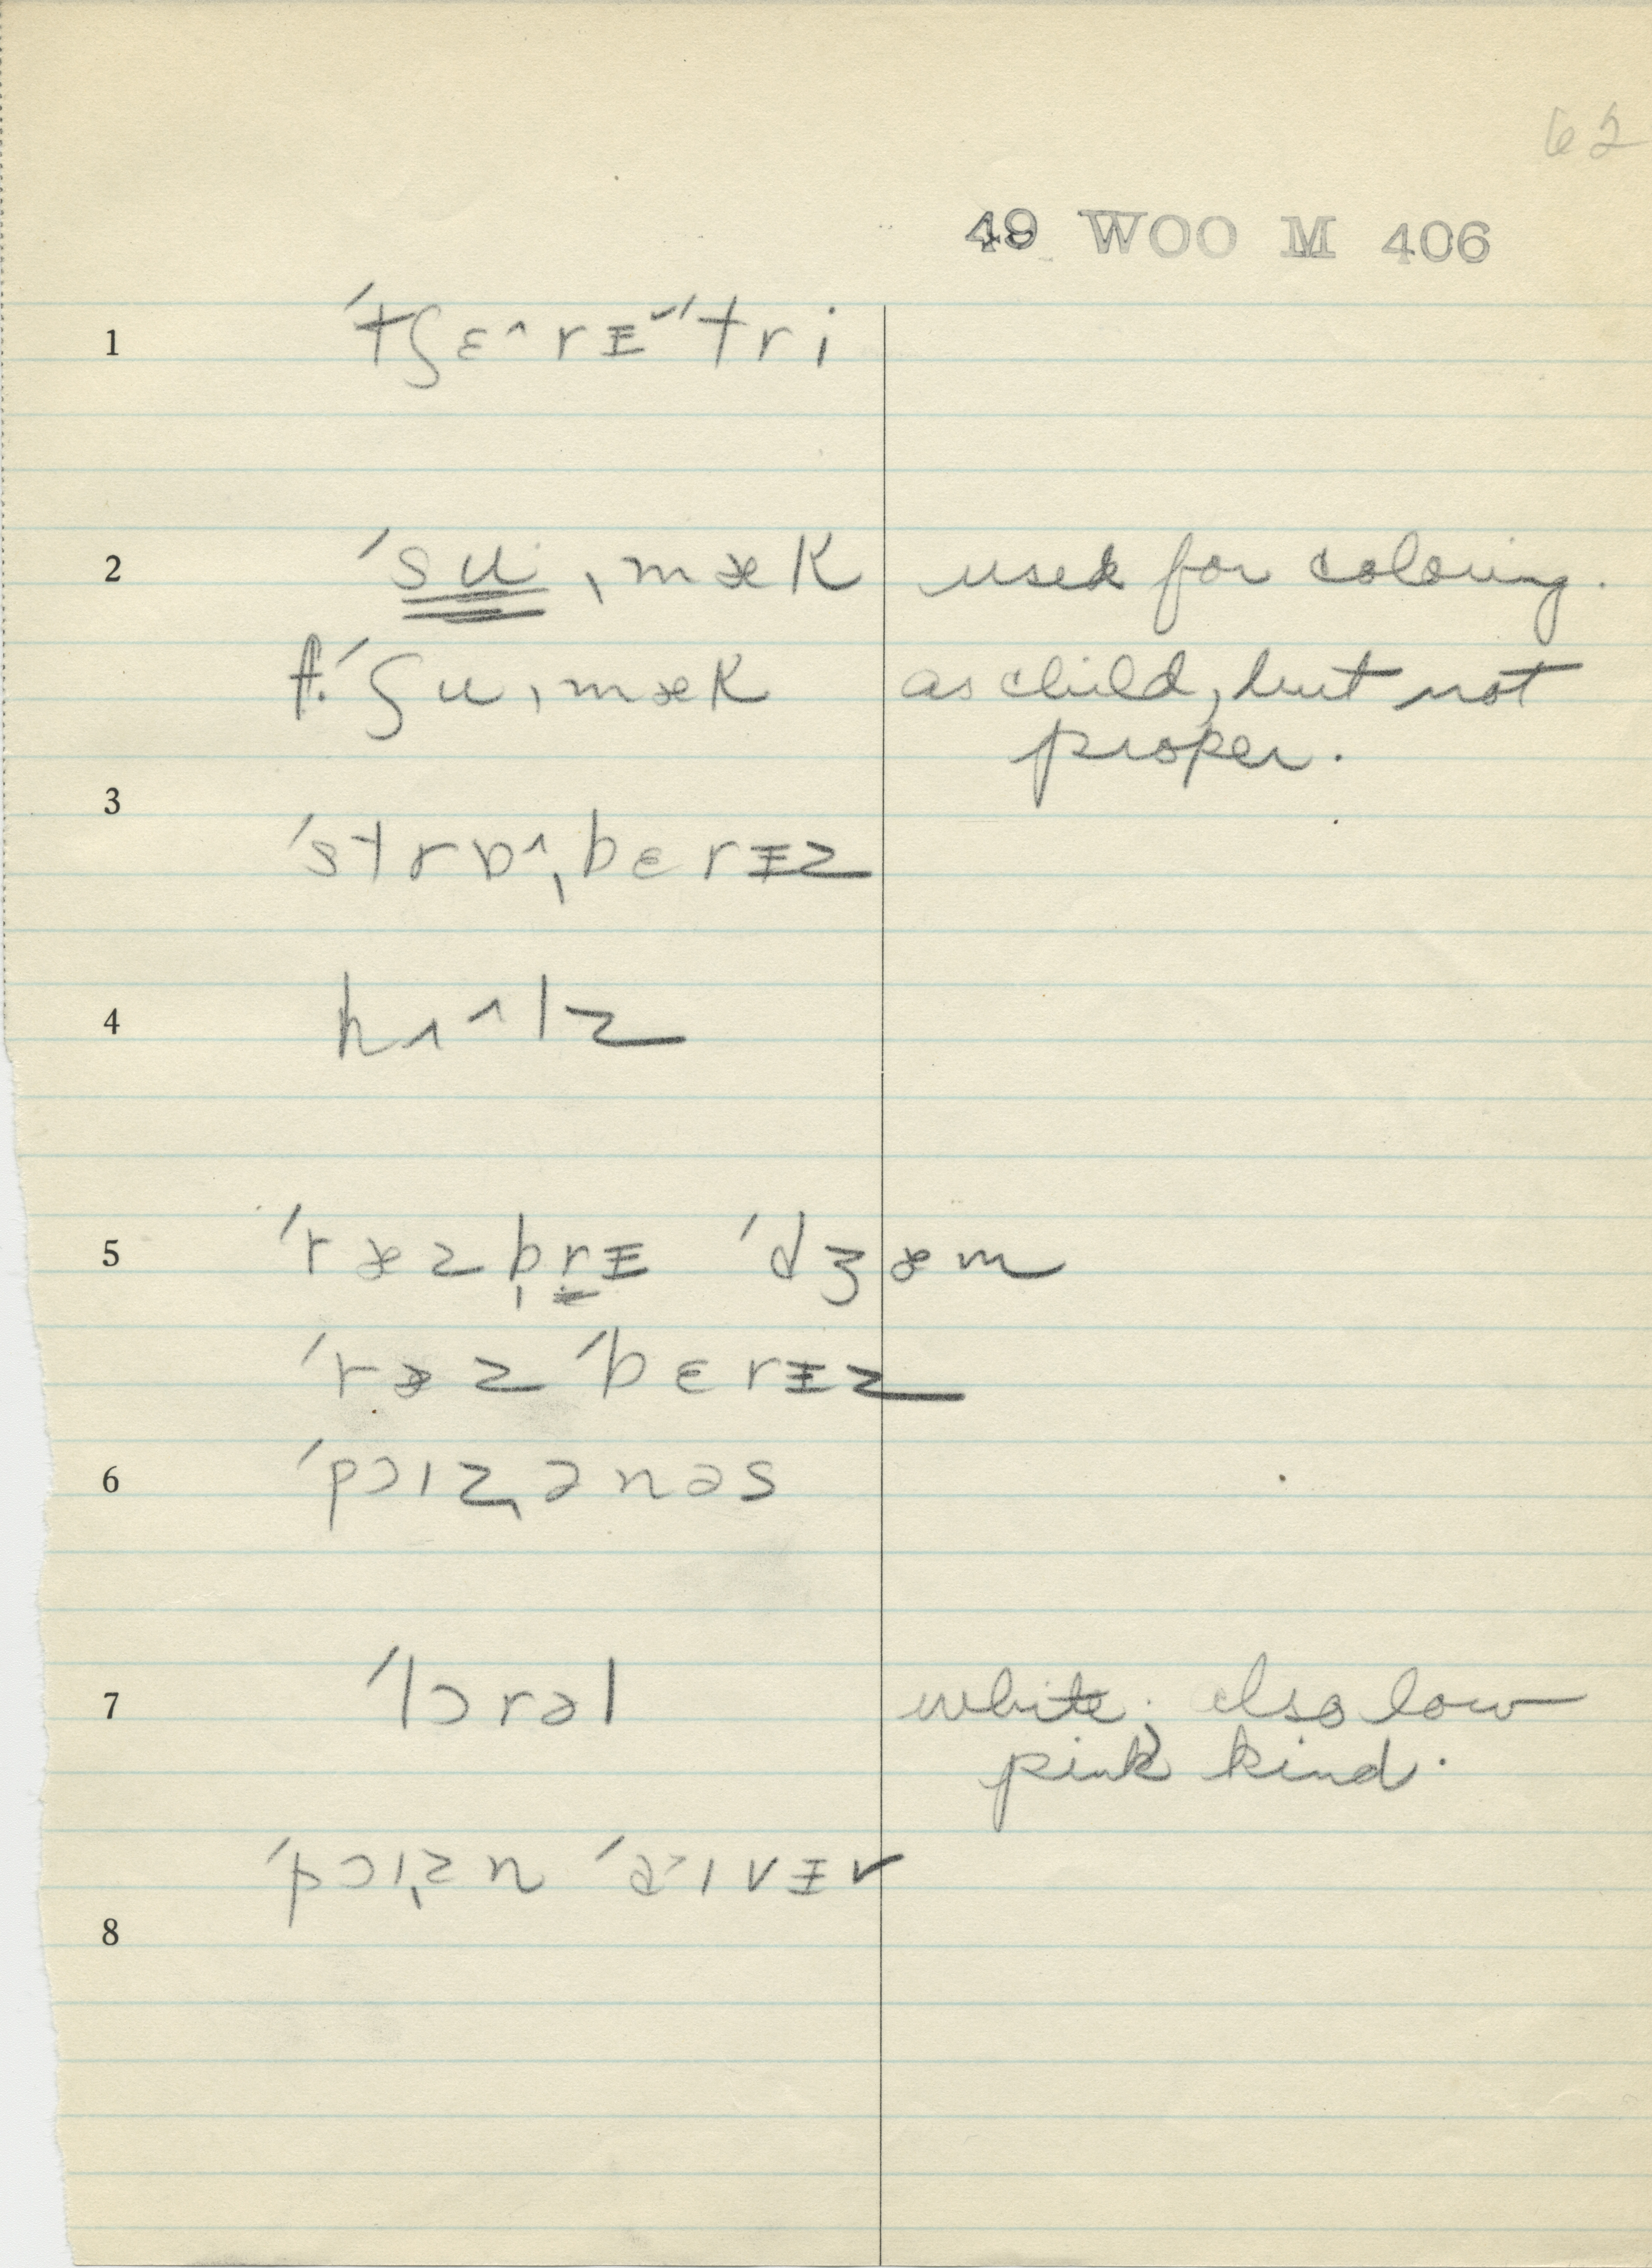 62
49 WOO M 406
1 ˈtʃɛ^rᵻ˅ˈtri
2 ˈsu ˌmæk used for coloring.
f. ˈʃuˌmæk as child, but not
proper.
3
ˈstrɒ^ˌbɛrᵻz
4 hʌ^lz
5 ˈræzb̩rᵻ ˈdʒæm
ˈræz ˈbɛrᵻz
6 ˈpɔɪz̩ənəs
7 ˈlɔrəl white; also low
pink kind.
ˈpɔɪz̩n ˈaɪvᵻ
8